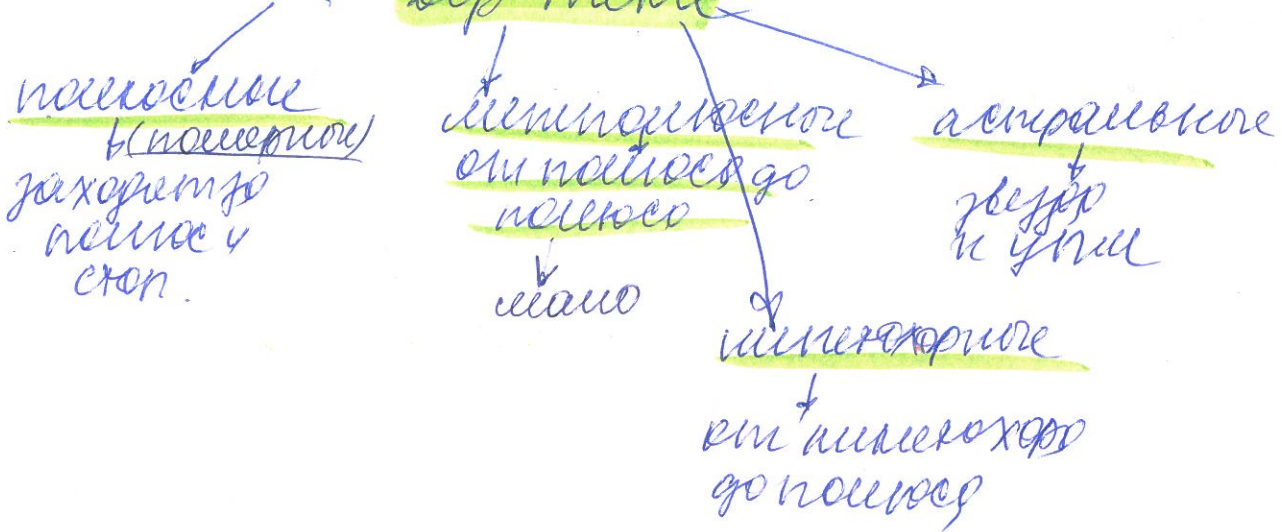 полюсные
(полярные)
заходят за
полюс и
стоп.
межполюсные
от полюса до
полюса
мало
астральные
звезда
кинетохорные
от кинетохора
до полюса